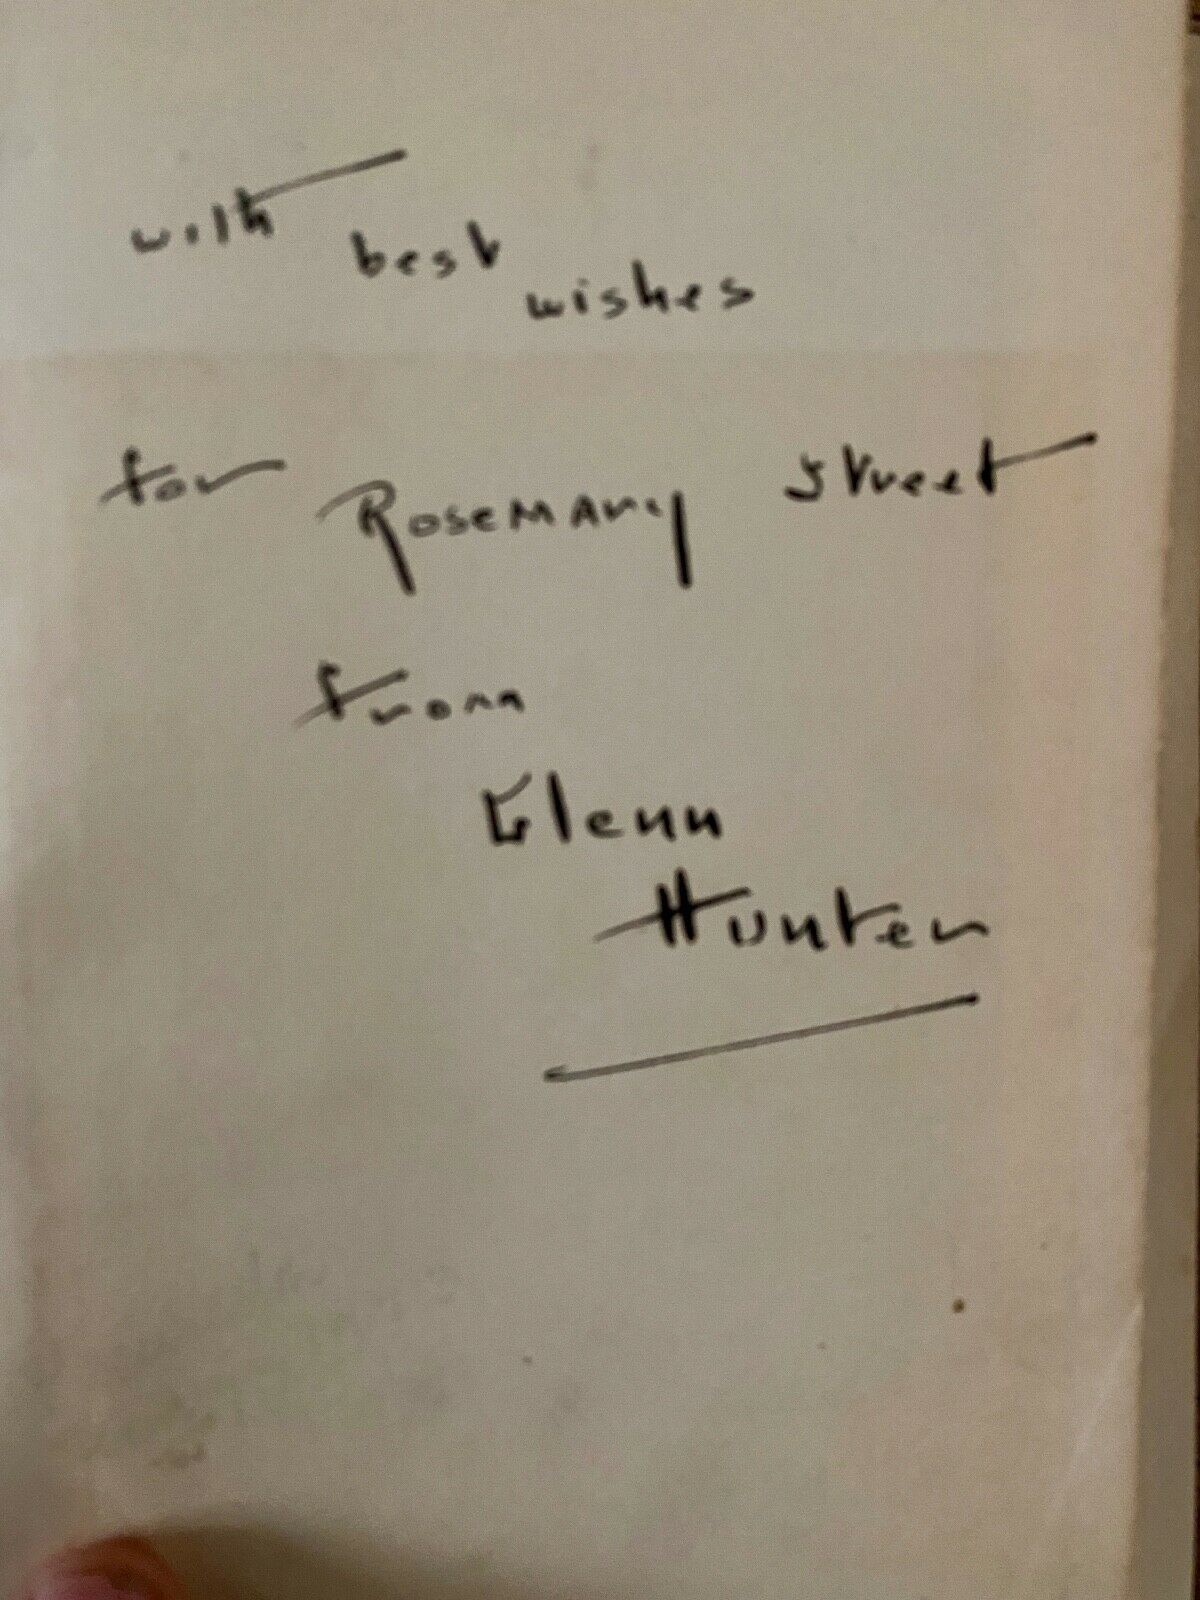 with best wishes
for Rosemary Street
from
Glenn
Hunter